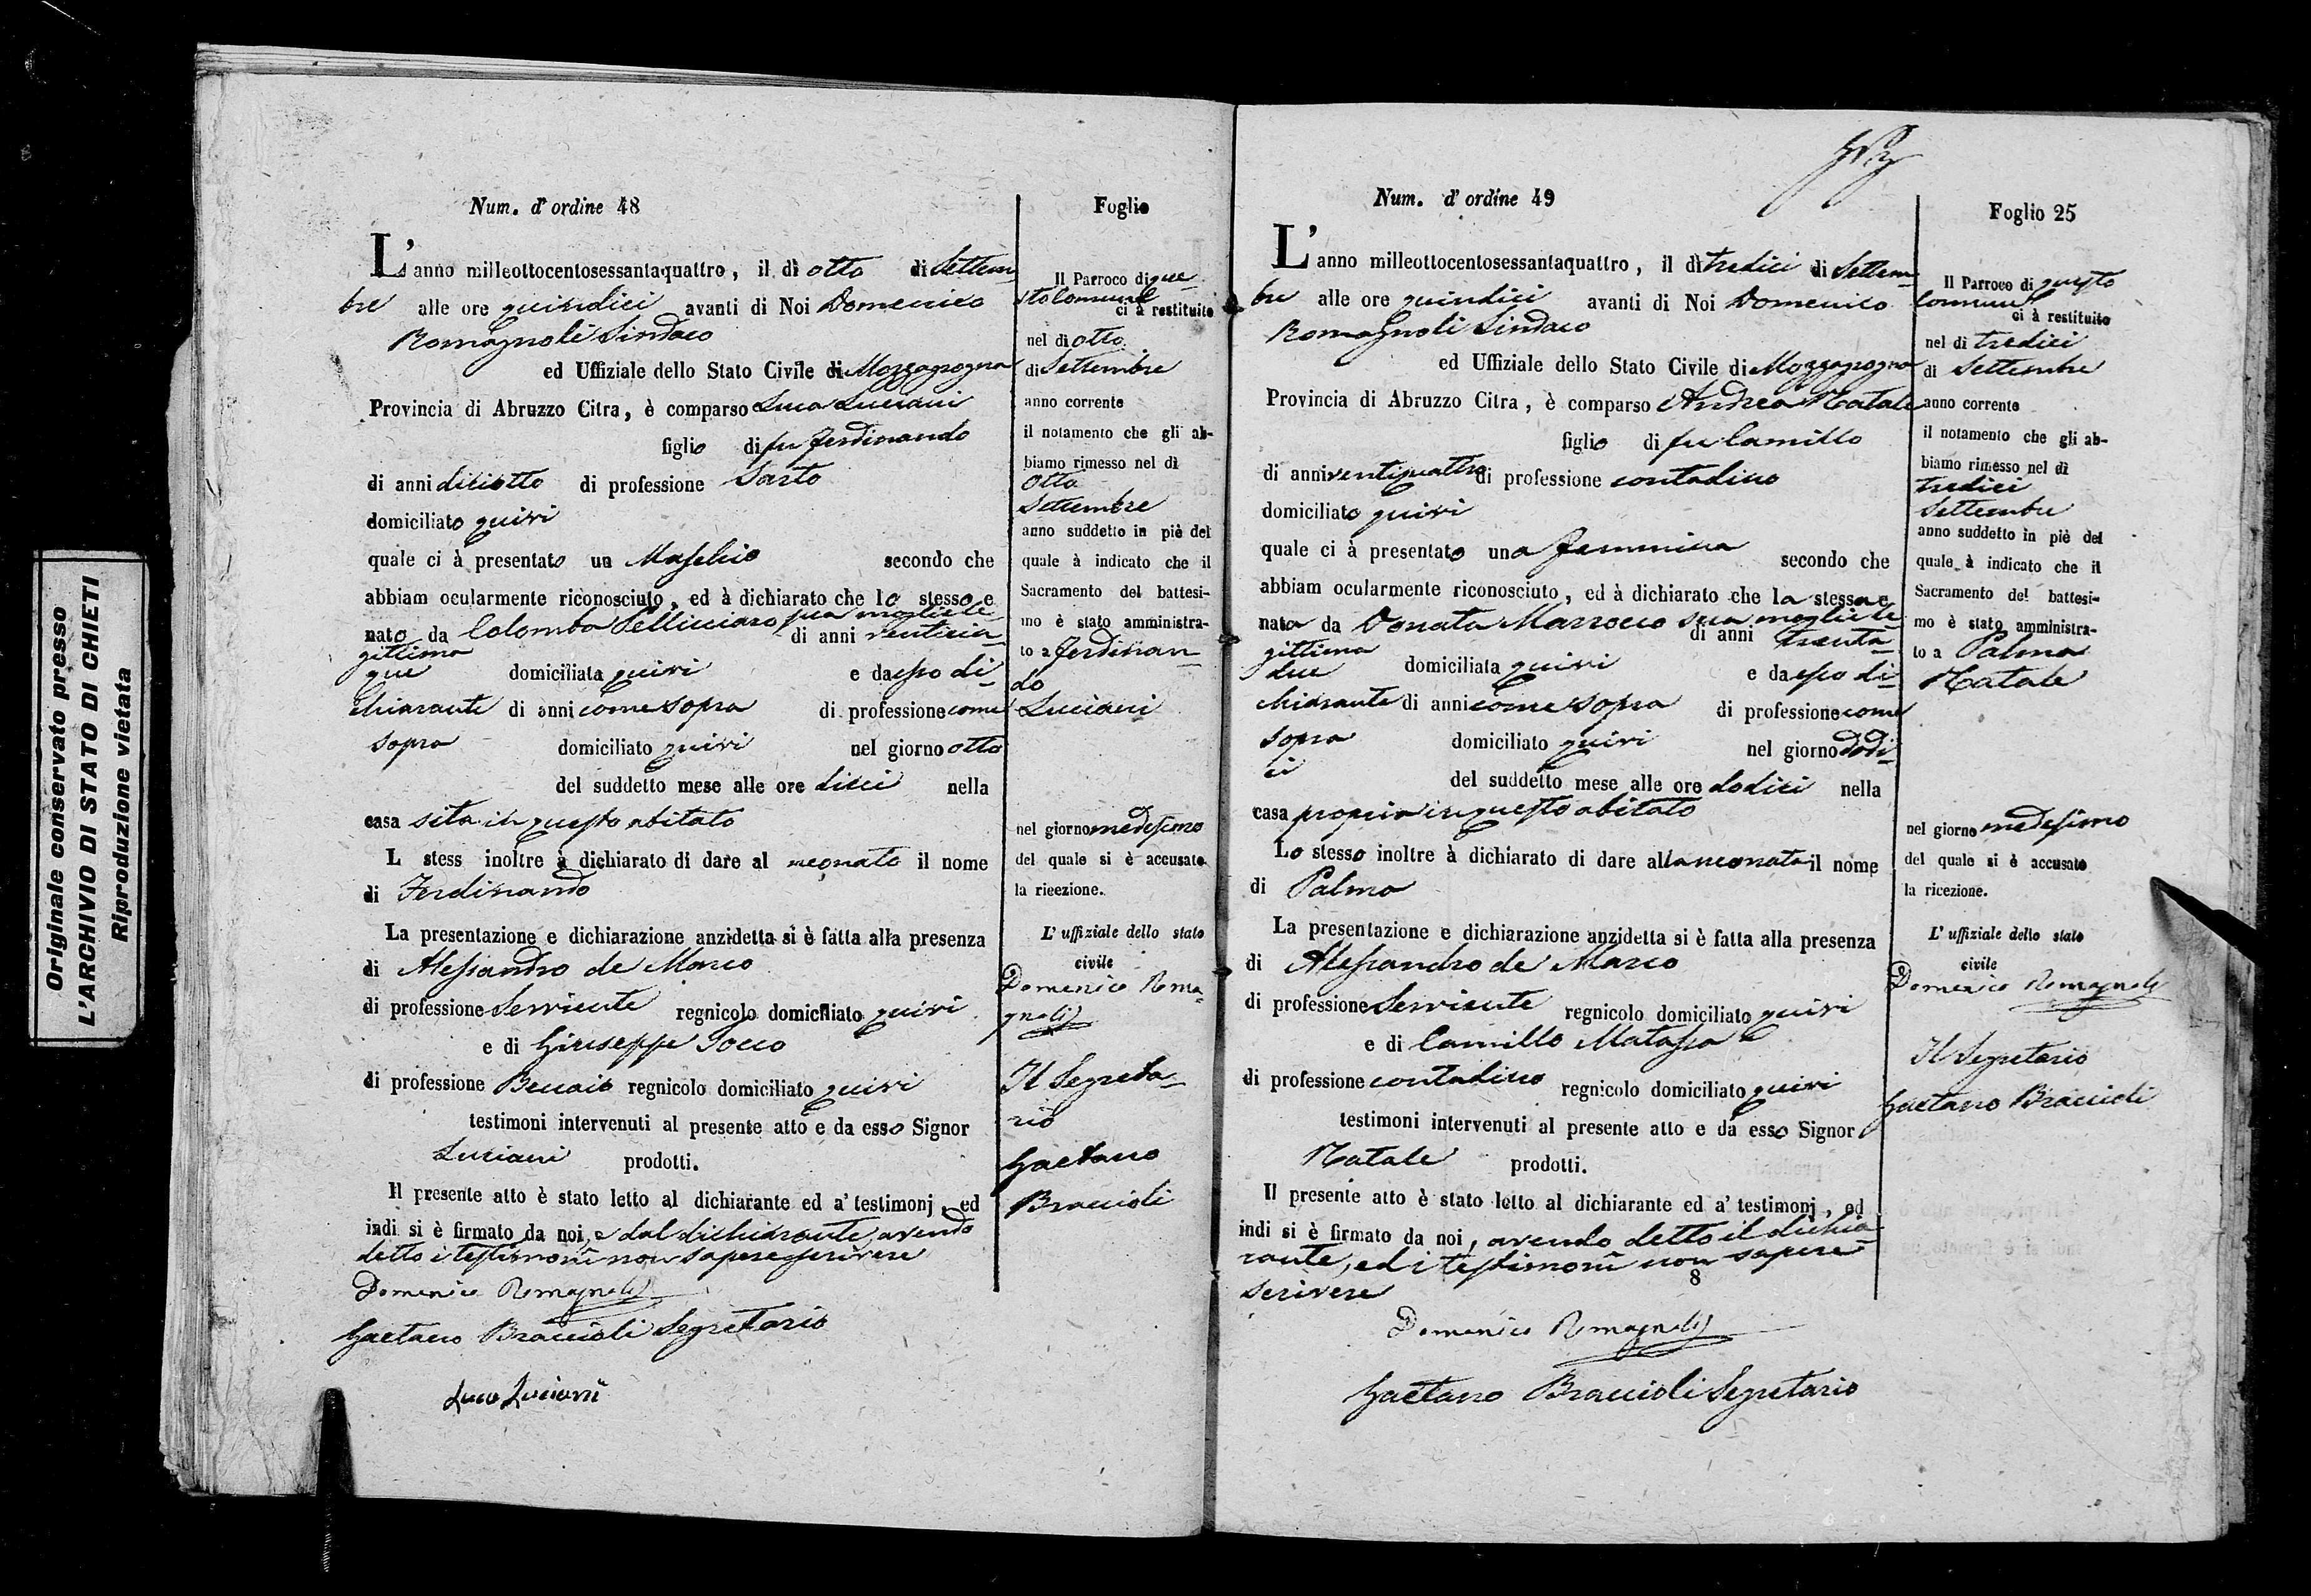 Originale conservato presso
L'ARCHIVIO DI STATO DI CHIETI
Riproduzione vietata
Num. d'ordine 48
L'anno milleottocentosessantaquattro, il dì otto di Settem
bre alle ore quindici avanti di Noi Domenico
Romagnoli Sindaco
ed Uffiziale dello Stato Civile di Mozzagrogna
Provincia di Abruzzo Citra, è comparso Luca Luciani
figlio di fu Ferdinando
di anni diciotto di professione Sarto
domiciliato quivi
quale ci à presentato un Maschio secondo che
abbiam ocularmente riconosciuto, ed à dichiarato che lo stesso e
nato da Colomba Pellicciaro sua moglie le-
gittima di anni venticin-
que domiciliata quivi e da esso di-
chiarante di anni come sopra di professione come
sopra domiciliato quivi nel giorno otto
del suddetto mese alle ore dieci nella
casa sita in questo abitato
L stess inoltre à dichiarato di dare al neonato il nome
di Ferdinando
La presentazione e dichiarazione anzidetta si è fatta alla presenza
di Alessandro de Marco
di professione Serviente regnicolo domiciliato quivi
e di Giuseppe
di professione Beccaio regnicolo domiciliato quivi
testimoni intervenuti al presente atto e da esso Signor
Luciani prodotti.
Il presente atto è stato letto al dichiarante ed a' testimonj, ed
indi si è firmato da noi, e dal dichiarante, avendo
detto i testimonî non sapere scrivere
Domenico Romagnoli
Gaetano Braccioli Segretario
Luca Luciani
Foglio
Il Parroco di que
sto Comune
ci à restituito
nel dì otto
di Settembre
anno corrente
il notamento che gli ab-
biamo rimesso nel dì
otto
Settembre
anno suddetto in piè del
quale à indicato che il
Sacramento del battesi-
mo è stato amministra-
to a Ferdinan-
do
Luciani
nel giorno medesimo
del quale si è accusata
la ricezione.
L'uffiziale dello stato
civile
Domenico Roma-
gnoli
Il Segreta-
rio
Gaetano
Braccioli
Num. d'ordine 49
L'anno milleottocentosessantaquattro, il dì tredici di Settem-
bre alle ore quindici avanti di Noi Domenico
Romagnoli Sindaco
ed Uffiziale dello Stato Civile di Mozzagrogna
Provincia di Abruzzo Citra, è comparso Andrea Natale
figlio di fu Camillo
di anni ventiquattro di professione contadino
domiciliato quivi
quale ci à presentato una femmina secondo che
abbiam ocularmente riconosciuto, ed à dichiarato che la stessa e
nata da Donata Marrocco sua moglie le
gittima di anni trenta-
due domiciliata quivi e da esso di-
chiarante di anni come sopra di professione come
sopra domiciliato quivi nel giorno dodi-
ci del suddetto mese alle ore dodici nella
casa propria in questo abitato
Lo stesso inoltre à dichiarato di dare alla neonata il nome
di Palma
La presentazione e dichiarazione anzidetta si è fatta alla presenza
di Alessandro de Marco
di professione Serviente regnicolo domiciliato quivi
e di Camillo Matassa
di professione contadino regnicolo domiciliato quivi
testimoni intervenuti al presente atto e da esso Signor
Natale prodotti.
Il presente atto è stato letto al dichiarante ed a' testimonj, ed
indi si è firmato da noi, avendo detto il dichia-
rante, ed i testimonî non sapere
8
scrivere
Domenico Romagnoli
Gaetano Braccioli Segretario
Foglio 25
Il Parroco di questo
Comune
ci à restituito
nel dì tredici
di Settembre
anno corrente
il notamento che gli ab-
biamo rimesso nel dì
tredici
Settembre
anno suddetto in piè del
quale à indicato che il
Sacramento del battesi-
mo è stato amministra-
to a Palma
Natale
nel giorno medesimo
del quale si è accusato
la ricezione.
L'uffiziale dello stato
civile
Domenico Romagnoli
Il Segretario
Gaetano Braccioli